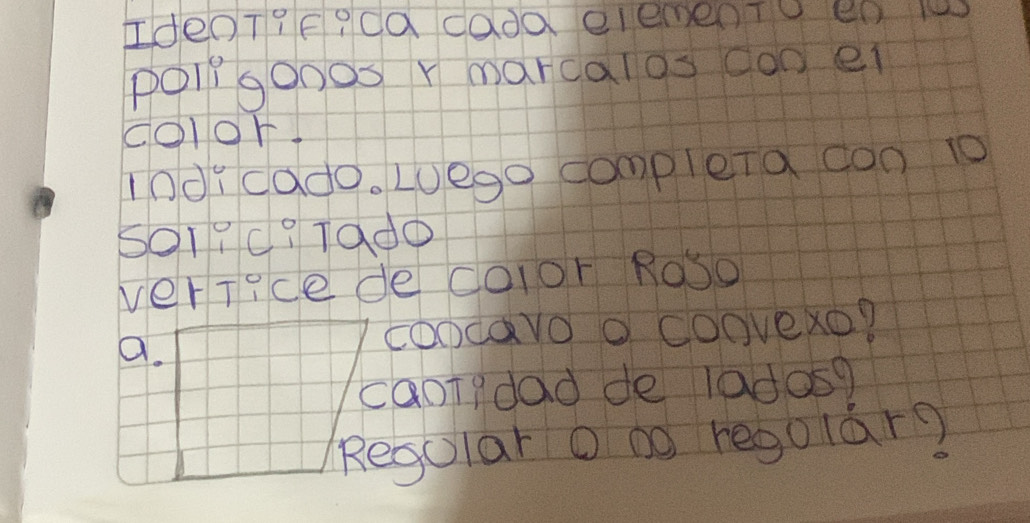 Identifica cada elemento en los
poligonos y marcalos con el
color.
indicado. Luego completa con lo
solicitado
vertice de color Roso
a. concavo o convexo?
cantidad de lados?
Regular o no regolar?